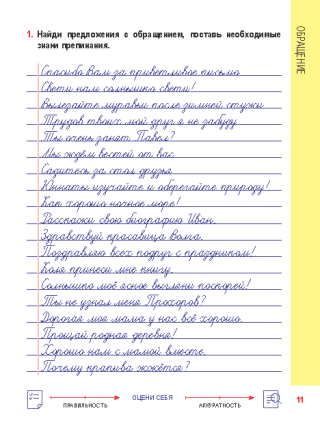 ОБРАЩЕНИЕ
1. Найди предложения с обращением, поставь необходимые
знаки препинания.
Спасибо Вам за приветливое письмо
Свети нам солнышко свети!
Вылезайте муравьи после зимней стужи
Трудов твоих мой друг я не забуду
Ты очень занят Павел?
Мы ждём вестей от вас
Садитесь за стол друзья
Юннаты изучайте и оберегайте природу!
Как хорошо ночное море!
Расскажи свою биографию Иван.
Здравствуй красавица Волга.
Поздравляю всех подруг с праздником!
Коля принеси мне книгу.
Солнышко моё ясное выгляни поскорей!
Ты не узнал меня Прохоров?
Дорогая моя мама у нас всё хорошо.
Прощай родная деревня!
Хорошо нам с мамой вместе.
Почему крапива жжётся?
ОЦЕНИ СЕБЯ
ПРАВИЛЬНОСТЬ
АККУРАТНОСТЬ
11